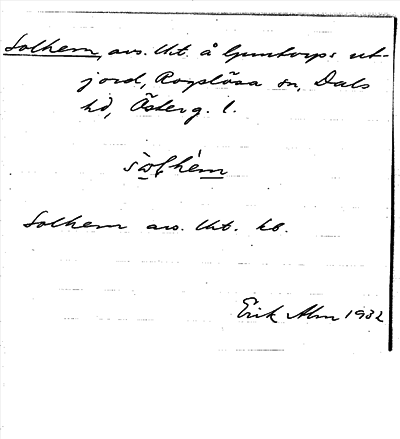 Solhem, avs. lht. å Guntorps ut-
jord, Rogslösa sn, Dals
hd, Österg. l.
Solhem avs. lht. kb.
Erik Alm 1932